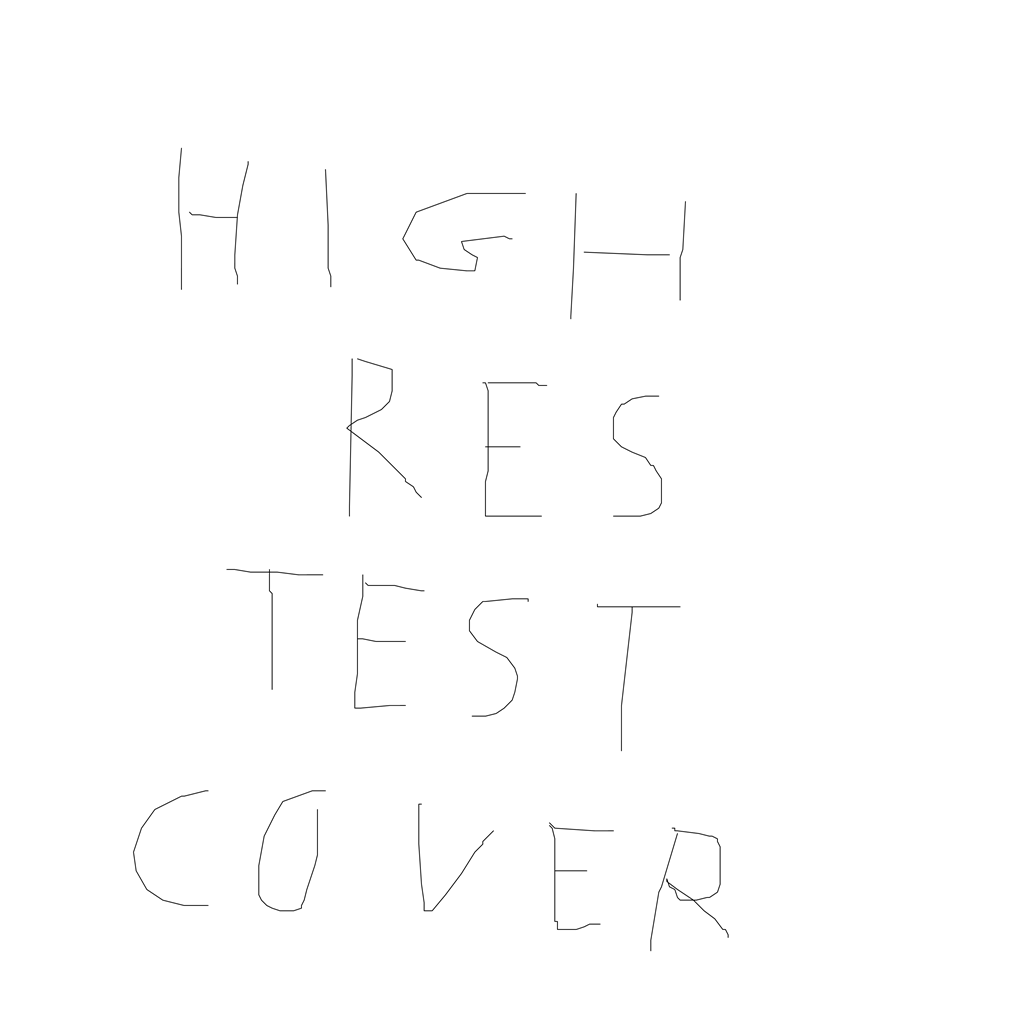 HIGH
RES
TEST
COVER